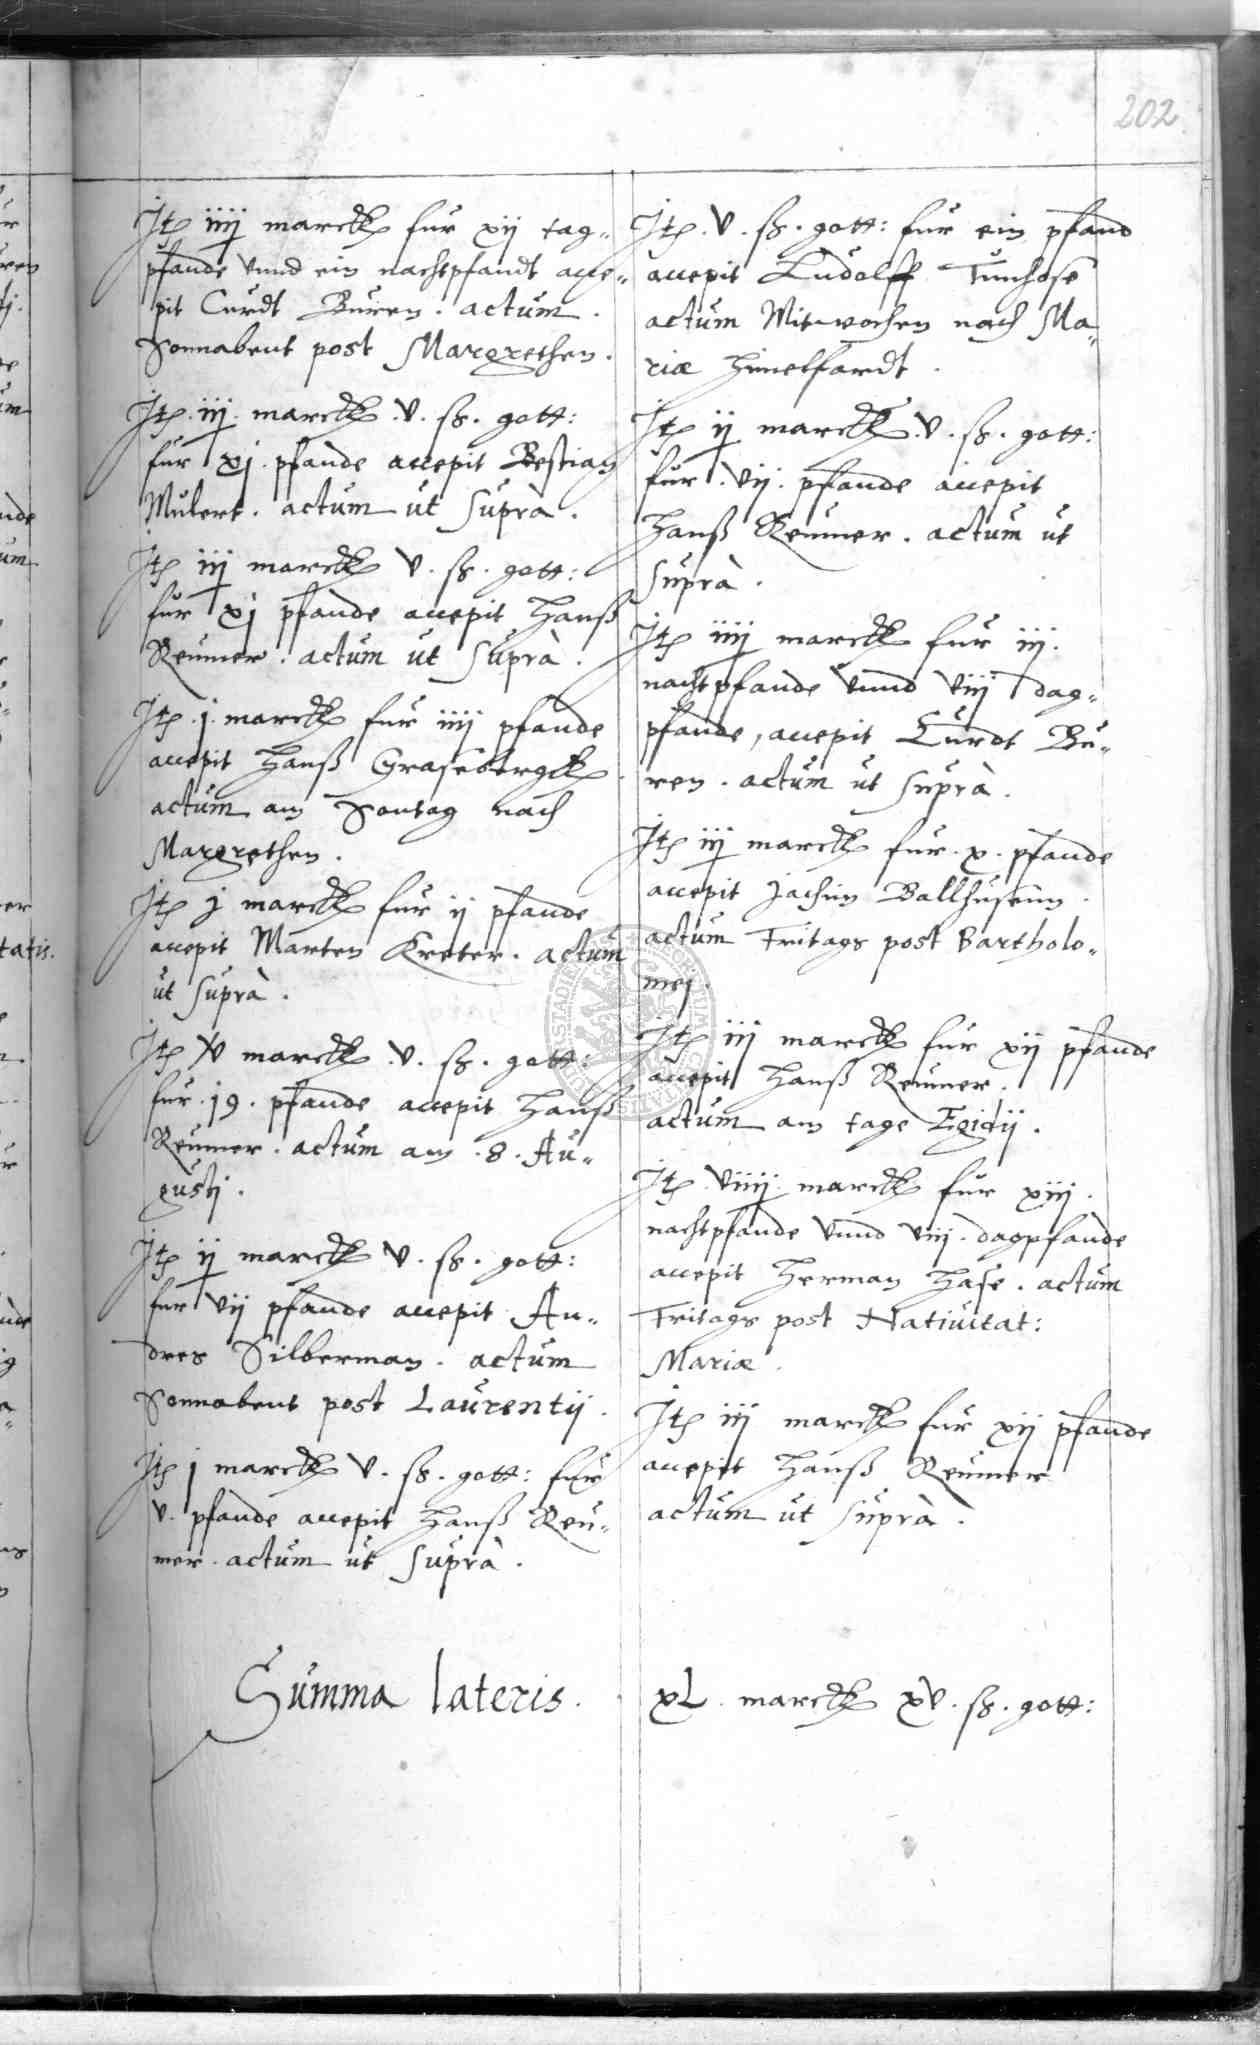 202
Jtem iiij marck fur xij tag-
pfande vnnd ein nachtpfandt acce-
pit Curdt Buren. actum.
Sonnabent post Margrethen.
Jtem. iij. marck. v. ß. gott:
fur xj. pfande accepit Bestian
Mulert. actum ut Suprà.
Jtem iij marck v. ß. gott:
fur xj pfande accepit Hanß
Reumer. actum ut Suprà.
Jtem. j. marck fur iiij pfande
accepit Hanß Grasebergck
actum am Sontag nach
Margrethen.
Jtem j marck fur ij pfande
accepit Marten Kreter. actum
ut Suprà.
Jtem marck v. ß. gott:
fur. 19. pfande accepit Hanß
Reumer. actum am. 8. Au-
gusti.
Jtem ij marck v. ß. gott:
fur vij pfande accepit An-
dres Silberman. actum
Sonnabent post Laurentij.
Jtem j marck v. ß. gott: fur
v. pfande accepit Hanß Reu-
mer. actum ut Suprà.
Jtem. v. ß. gott: fur ein pfand
accepit Ludolff Tunhose
actum Mitwochen nach Ma-
riæ Himelfardt.
Jtem ij marck. v. ß. gott:
fur. vij. pfande accepit
Hanß Reumer. actum ut
Suprà.
Jtem iiij marck fur iij.
nachtpfande vnnd viij dag-
pfande, accepit Curdt Bu-
ren. actum ut Suprà.
Jtem iij marck fur. x. pfande
accepit Jachim Ballhusenn.
actum Fritags post Bartholo-
mej.
Jtem iij marck fur xij pfande
accepit Hanß Reumer.
actum am tage Egidij.
Jtem. viiij. marck fur xiij.
nachtpfande vnnd viij. dagpfande
accepit Herman Hase. actum
Fritags post Natiuitat:
Mariæ.
Jtem iij marck fur xij pfande
accepit Hanß Reumer
actum ut Suprà.
Summa lateris. xL. marck xv. ß. gott: